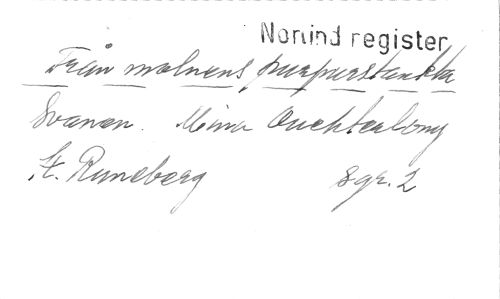 Nonind register
Från molnens purpurstänkta
Svanen. Mina Ouchterlony
F. Runeberg sgr. 2